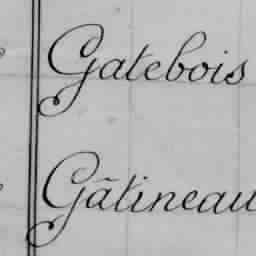 Gatebois
Gâtineau